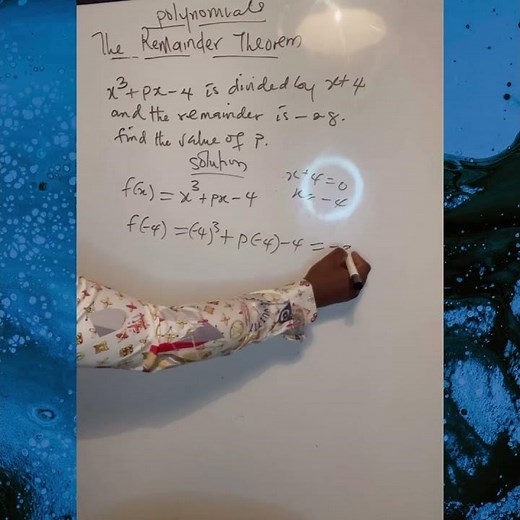 polynomials
The Remainder Theorem
x³+px-4 is divided by x+4
and the remainder is -28.
find the value of P.
solution
f(x) = x³+px-4
x+4=0
x=-4
f(-4) = (-4)³+p(-4)-4 = -2